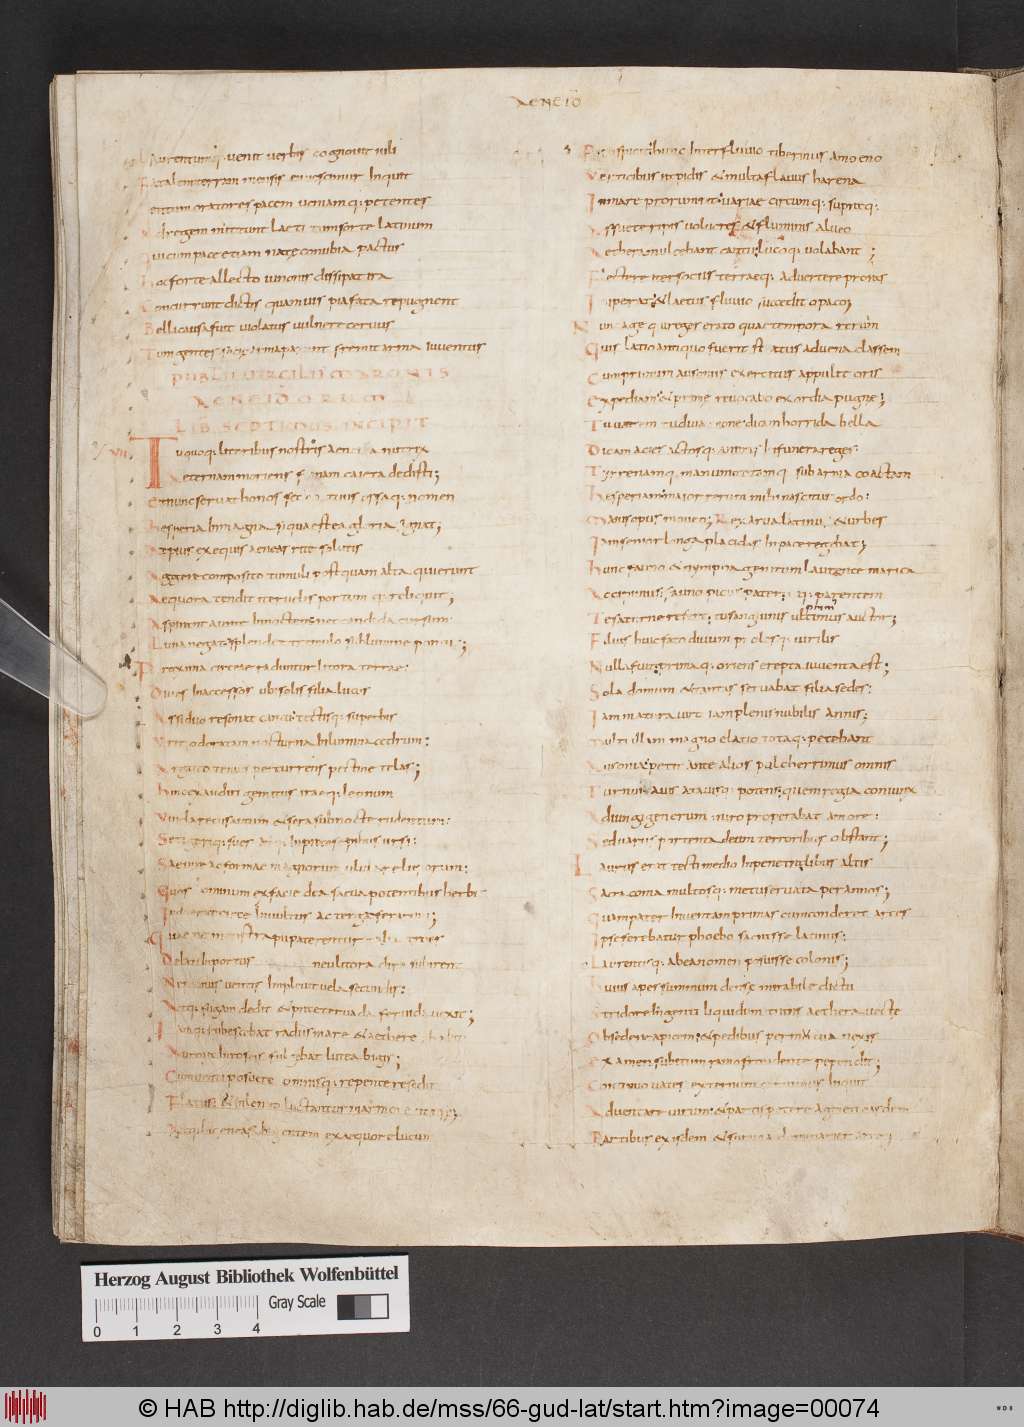 AENEID
Laurentumq; venit verbis cognovit iuli
Fatalem terram mensis en vescimur inquit
Centum oratores pacem veniamq; petentes
Ad regem mittunt Laeti tum forte latinum
Qui cum pace etiam natae conubia pactus
hoc forte allecto iunonis dissipat ira
Concurrunt dictis quamvis pia fata repugnent
Belli causa fuit violatus vulnere cervus
Tum gentes sociae arma parant fremit arma iuventus
PUBLII VIRGILII MARONIS
AENEIDORUM
LIB. SEPTIMUS. INCIPIT
VII
Tu quoq; litoribus nostris aeneia nutrix
Aeternam moriens famam caieta dedisti;
Et nunc servat honos sedem tuus ossaq; nomen
hesperia in magna siqua est ea gloria signat;
At pius exequiis aeneas rite solutis
Aggere composito tumuli postquam alta quierunt
Aequora tendit iter velis portumq; reliquit;
Aspirant aurae in noctem nec candida cursum
Luna negat splendet tremulo sub lumine pontus;
Proxima circeae raduntur litora terrae:
Dives inaccessos ubi solis filia lucos
Assiduo resonat cantu tectisq; superbis
Urit odoratam nocturna in lumina cedrum:
Arguto tenuis percurrens pectine telas;
hinc exaudiri gemitus iraeq; leonum
Vincla recusantum & sera sub nocte rudentum:
Setigeriq; sues atq; in presepibus ursi:
Saevire ac formae magnorum ululare luporum:
Quos hominum ex facie dea saeva potentibus herbis
Induerat circe in vultus ac terga ferarum;
Quae ne monstra pii paterentur talia troes
Delati in portus neu litora dira subirent
Neptunus ventis implevit vela secundis:
Atq; fugam dedit & preter vada fervida vexit;
Iamq; rubescebat radiis mare & aethere ab alto
Aurora in roseis fulgebat lutea bigis;
Cum venti posuere omnisq; repente resedit
Flatus & in lento luctantur marmore tonsae;
Atq; hic aeneas ingentem ex aequore lucum
Prospicit hunc inter fluvio tiberinus amoeno
Verticibus rapidis & multa flavus harena
In mare prorumpit variae circumq; supraq;
Assuetae ripis volucres & fluminis alveo
Aethera mulcebant cantu lucoq; volabant;
Flectere iter sociis terraeq; advertere proras
Imperat & laetus fluvio succedit opaco;
Nunc age qui reges erato quae tempora rerum
Quis latio antiquo fuerit status advena classem
Cum primum ausoniis exercitus appulit oris
Expediam & prime revocabo exordia pugne;
Tu vatem tu diva mone dicam horrida bella
Dicam acies actosq; animis in funera reges
Tyrrenamq; manum totamq; sub arma coactam
hesperiam maior rerum mihi nascitur ordo:
Maius opus moveo; Rex arva latinus & urbes
Iam senior longa placidas in pace regebat;
hunc fauno & nympha genitum laurente marica
Accipimus; fauno picus pater; isq; parentem
Te saturne refert; tu sanguinis ultimus auctor;
Filius huic fato divum prolesq; virilis
Nulla fuit; primaq; oriens erepta iuventa est;
Sola domum & tantas servabat filia sedes:
Iam matura viro iam plenis nubilis annis:
Multi illam magno e latio totaq; petebant
Ausonia; petit ante alios pulcherrimus omnis
Turnus avis atavisq; potens; quem regia coniunx
Adiungi generum miro properabat amore:
Sed variis portenta deum terroribus obstant;
Laurus erat tecti medio in penetralibus altis
Sacra coma multosq; metu servata per annos;
Quam pater inventam primas cum conderet arces
Ipse ferebatur phoebo sacrasse latinus:
Laurentisq; ab ea nomen posuisse colonis;
huius apes summum densae mirabile dictu
Stridore ingenti liquidum trans aethera vecte
Obsedere apicem; & pedibus per mutua nexis
Examen subitum ramo frondente pependit;
Continuo vates externum cernimus inquit
Adventare virum; & partis petere agmen easdem
Partibus ex isdem & summa dominarier arce;
Herzog August Bibliothek Wolfenbüttel
Gray Scale
0 1 2 3 4
© HAB http://diglib.hab.de/mss/66-gud-lat/start.htm?image=00074